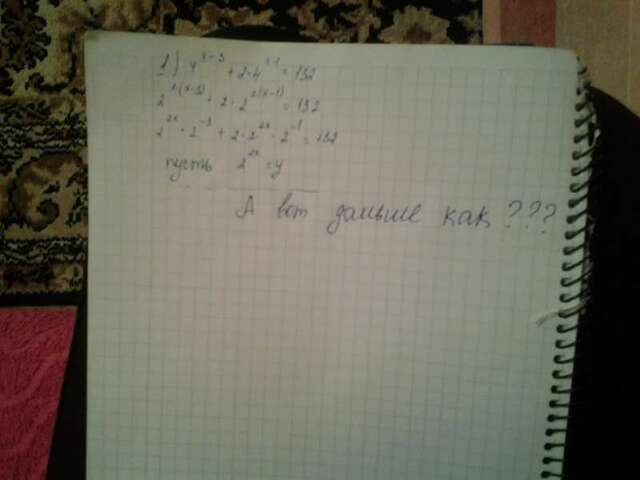 1) 4^{x-3} + 2·4^{x-1} = 132
2^{2(x-3)} + 2·2^{2(x-1)} = 132
2^{2x}·2^{-3} + 2·2^{2x}·2^{-1} = 132
пусть 2^{2x} = y
А вот дальше как ???